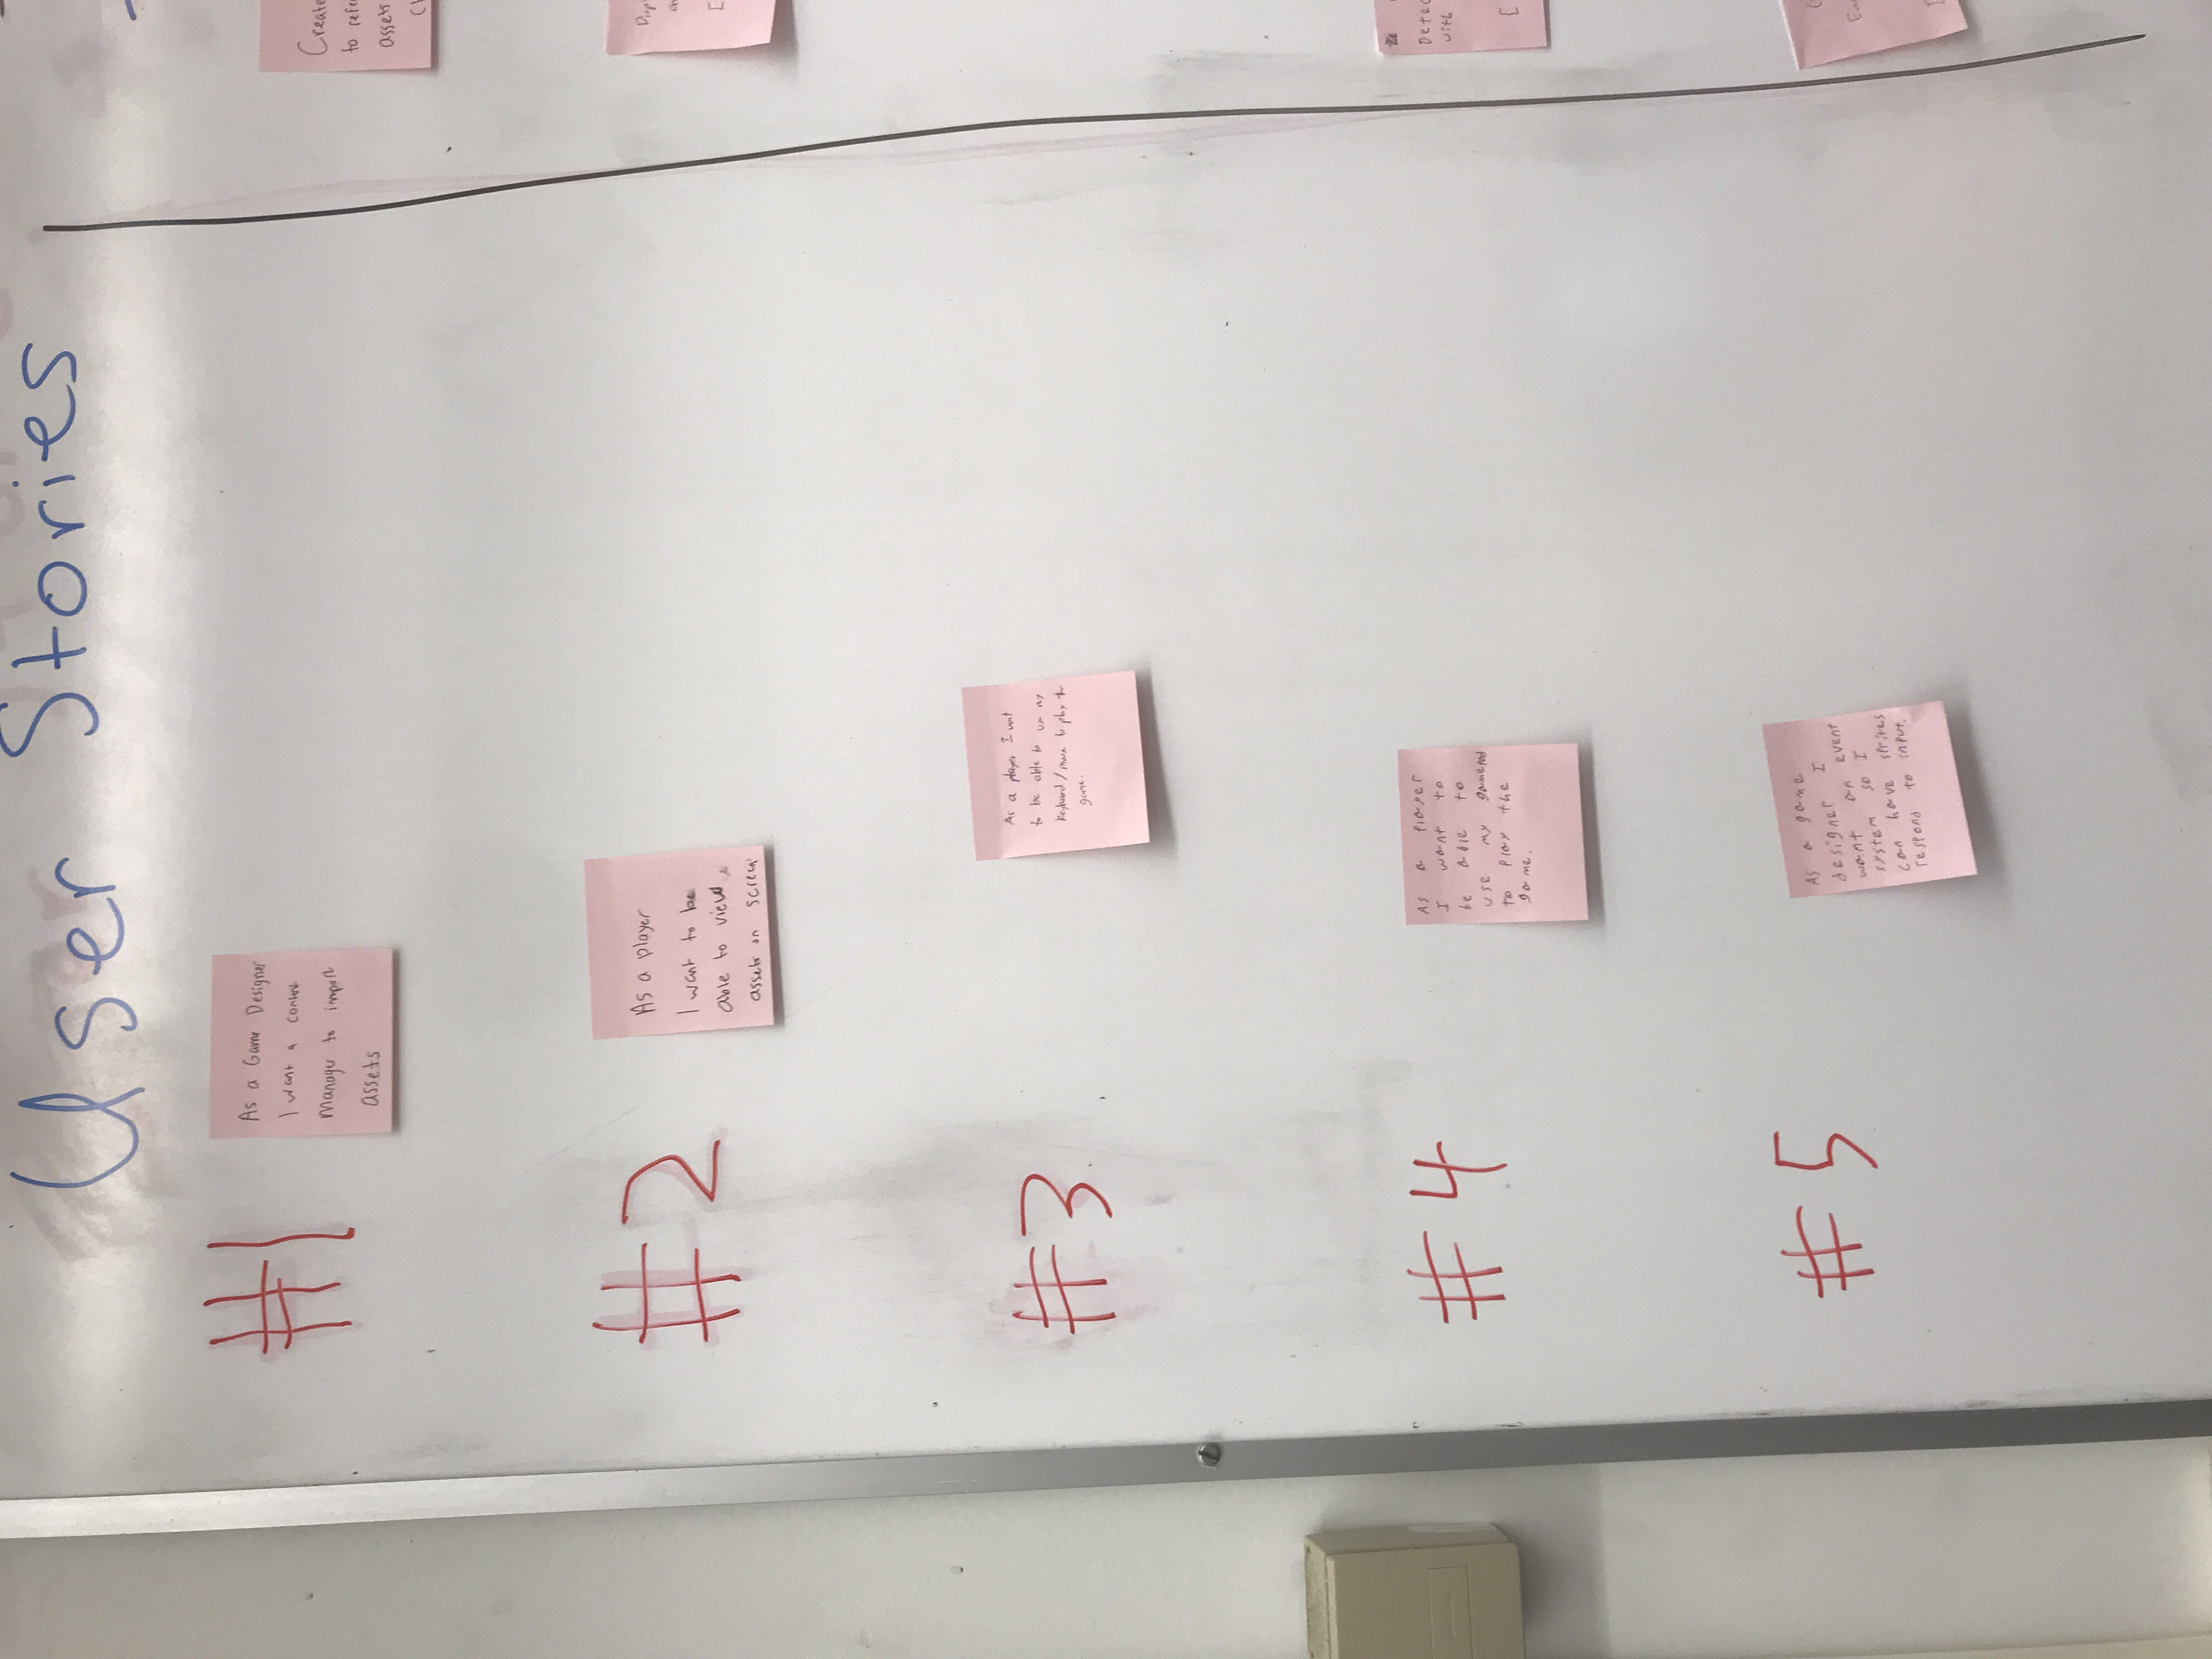 User Stories
#1
As a Game Designer
I want a content
Manager to import
assets
#2
As a player
I want to be
able to view
assets on screen
#3
As a player I want
to be able to use my
keyboard/mouse to play the
game.
#4
As a player
I want to
be able to
use my gamepad
to play the
game.
#5
As a game
designer I
want an event
system so I
can have sprites
respond to input.
Create
to
assets
Detec
with